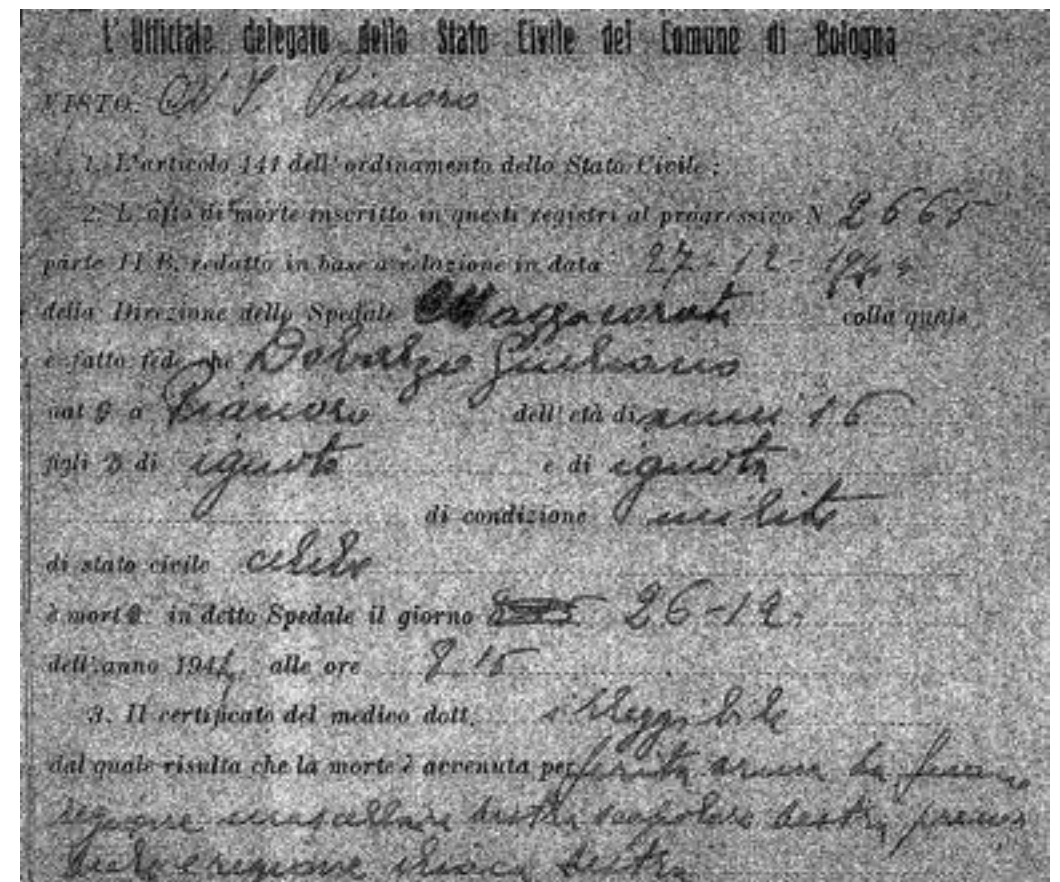 L'Ufficiale delegato dello Stato Civile del Comune di Bologna
VISTO: Pianoro
1. L'articolo 141 dell'ordinamento dello Stato Civile;
2. L'atto di morte inscritto in questi registri al progressivo N 2665
parte II B, redatto in base a relazione in data 27-12-1944
della Direzione dello Spedale colla quale
è fatto fede che Giuliano
nat o a Pianoro dell'età di anni 16
figli o di ignoto e di ignota
di condizione milite
di stato civile celibe
è mort o in detto Spedale il giorno 26-12-
dell'anno 1944 alle ore 8.15
3. Il certificato del medico dott. illeggibile
dal quale risulta che la morte è avvenuta per ferita arma da fuoco
regione mascellare destra scapolare destra
regione iliaca destra